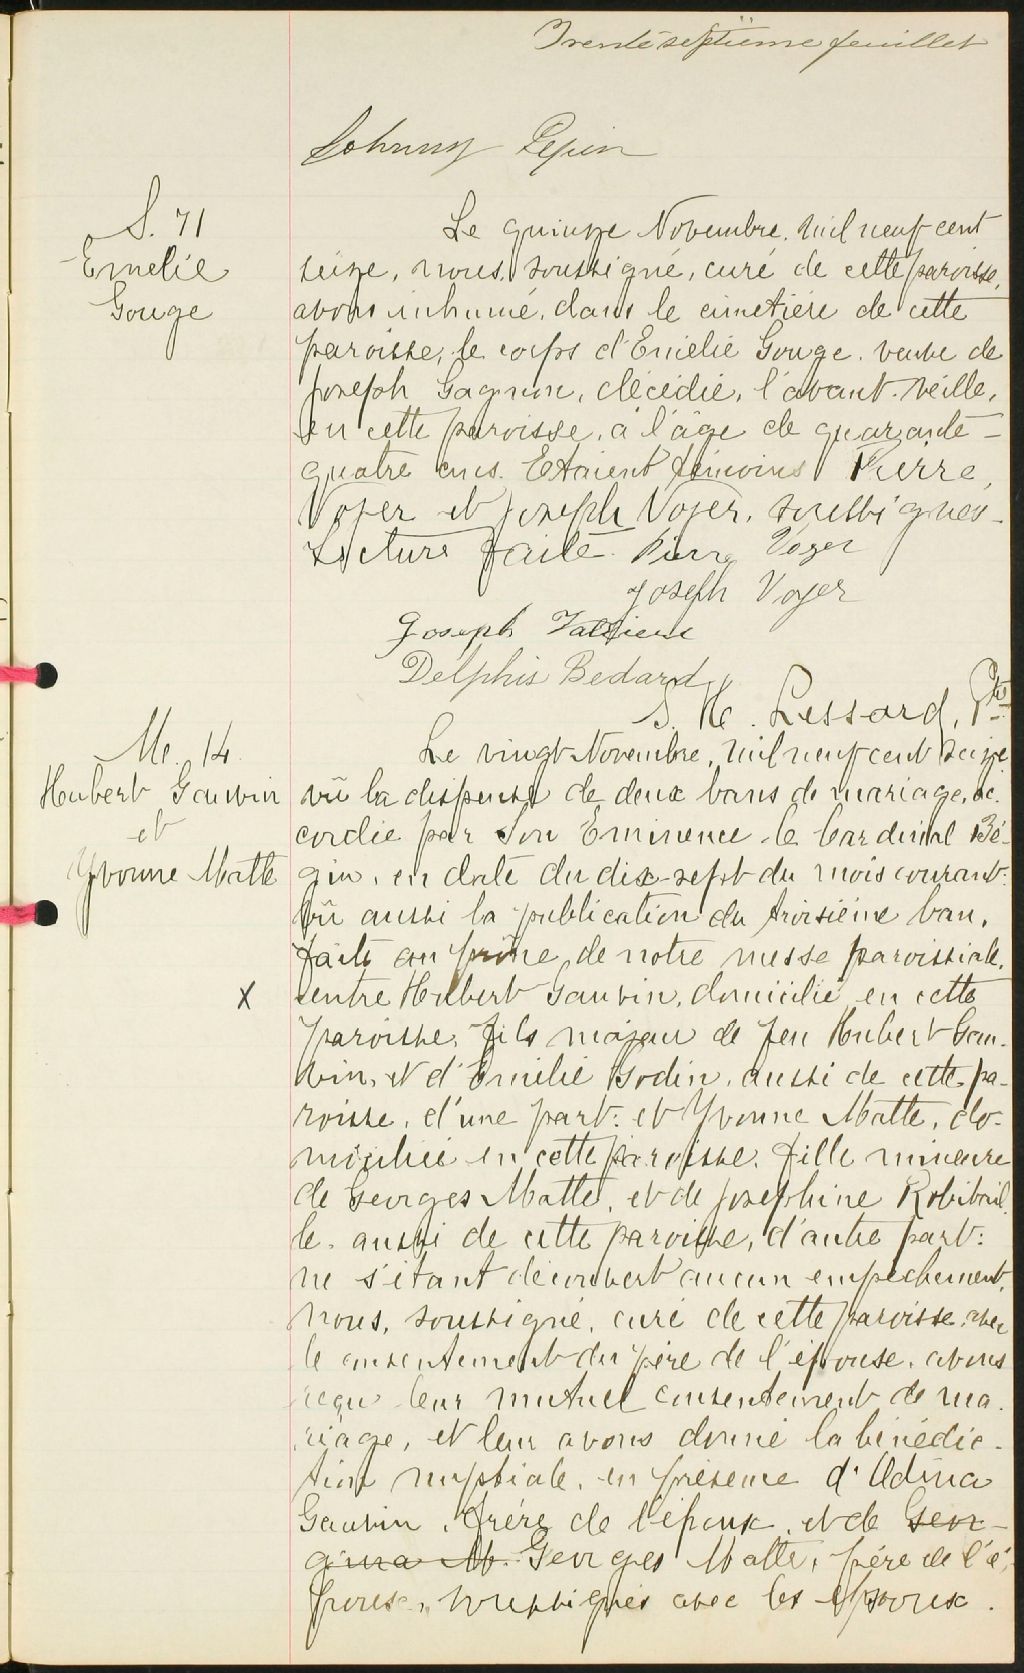 Trente septième feuillet
Johnny Pepin
S. 71
Emelie
Gouge
Le quinze Novembre, mil neuf cent
seize, nous, soussigné, curé de cette paroisse,
avons inhumé, dans le cimetière de cette
paroisse, le corps d'Emélie Gouge, veuve de
Joseph Gagnon, décédée, l'avant-veille,
en cette paroisse, à l'âge de quarante-
quatre ans. Etaient témoins Pierre
Voyer et Joseph Voyer, soussignés.
Lecture faite. Pierre Voyer
Joseph Voyer
Joseph
Delphis Bedard
S. H. Lessard, Ptre
M. 14
Hubert Gauvin
et
Yvonne Matte
X
Le vingt Novembre, mil neuf cent seize
vû la dispense de deux bans de mariage, ac-
cordée par Son Eminence le Cardinal Bé-
gin, en date du dix-sept du mois courant:
vû aussi la publication du troisième ban,
faite au prône de notre messe paroissiale,
entre Hubert Gauvin, domicilié en cette
paroisse, fils majeur de feu Hubert Gau-
vin, et d'Emélie Godin, aussi de cette pa-
roisse, d'une part: et Yvonne Matte, do-
miciliée en cette paroisse, fille mineure
de Georges Matte, et de Josephine Robitail
le, aussi de cette paroisse, d'autre part:
ne s'étant découvert aucun empêchement,
nous, soussigné, curé de cette paroisse, avec
le consentement du père de l'épouse, avons
reçu leur mutuel consentement de ma-
riage, et leur avons donné la bénédic-
tion nuptiale, en présence d'Odina
Gauvin, frère de l'époux, et de Geor-
gina M. Georges Matte, père de l'é-
pouse, soussignés avec les époux.